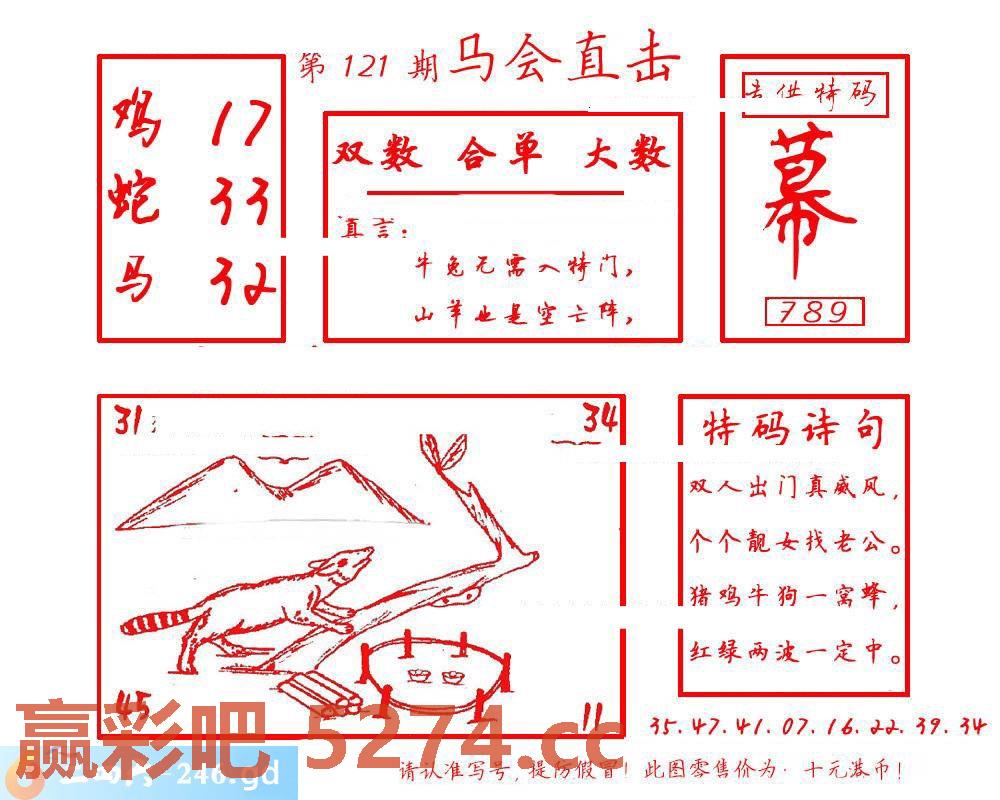 第 121 期 马会直击
鸡 17
蛇 33
马 32
双数 合单 大数
真言：
牛兔无需入特门，
山羊也是空亡阵，
特码
幕
789
31
34
45
11
特码诗句
双人出门真威风，
个个靓女找老公。
猪鸡牛狗一窝蜂，
红绿两波一定中。
35.47.41.07.16.22.39.34
请认准写号，提防假冒！此图零售价为：十元港币！
赢彩吧 5274.cc
-246.gd